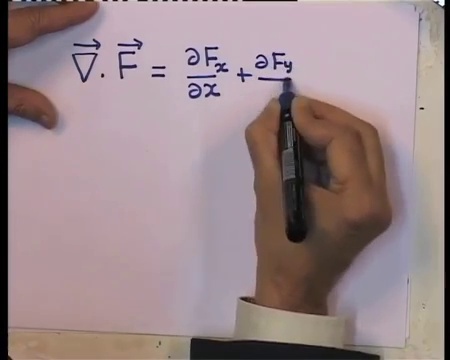 ∇⃗ . F⃗ = ∂Fx/∂x + ∂Fy/